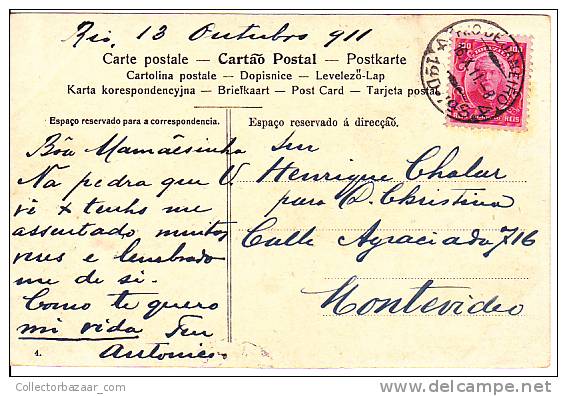 Rio, 13 Outubro 911
Carte postale – Cartão Postal – Postkarte
Cartolina postale – Dopisnice – Levelező-Lap
Karta korespondencyjna – Briefkaart – Post Card – Tarjeta postal
Espaço reservado para a correspondencia.
Espaço reservado á direcção.
Bôa Mamãesinha
Na pedra que V.
vê x tenho me
assentado muitas
vezes e lembrado
me de si.
Como te quero
mi vida
Antonico
4.
Snr
Henrique Chalar
para D. Christina
Calle Agraciada 716
Montevideo
RIO DE JANEIRO
100
REIS
CollectorBazaar.com
delcampe.net